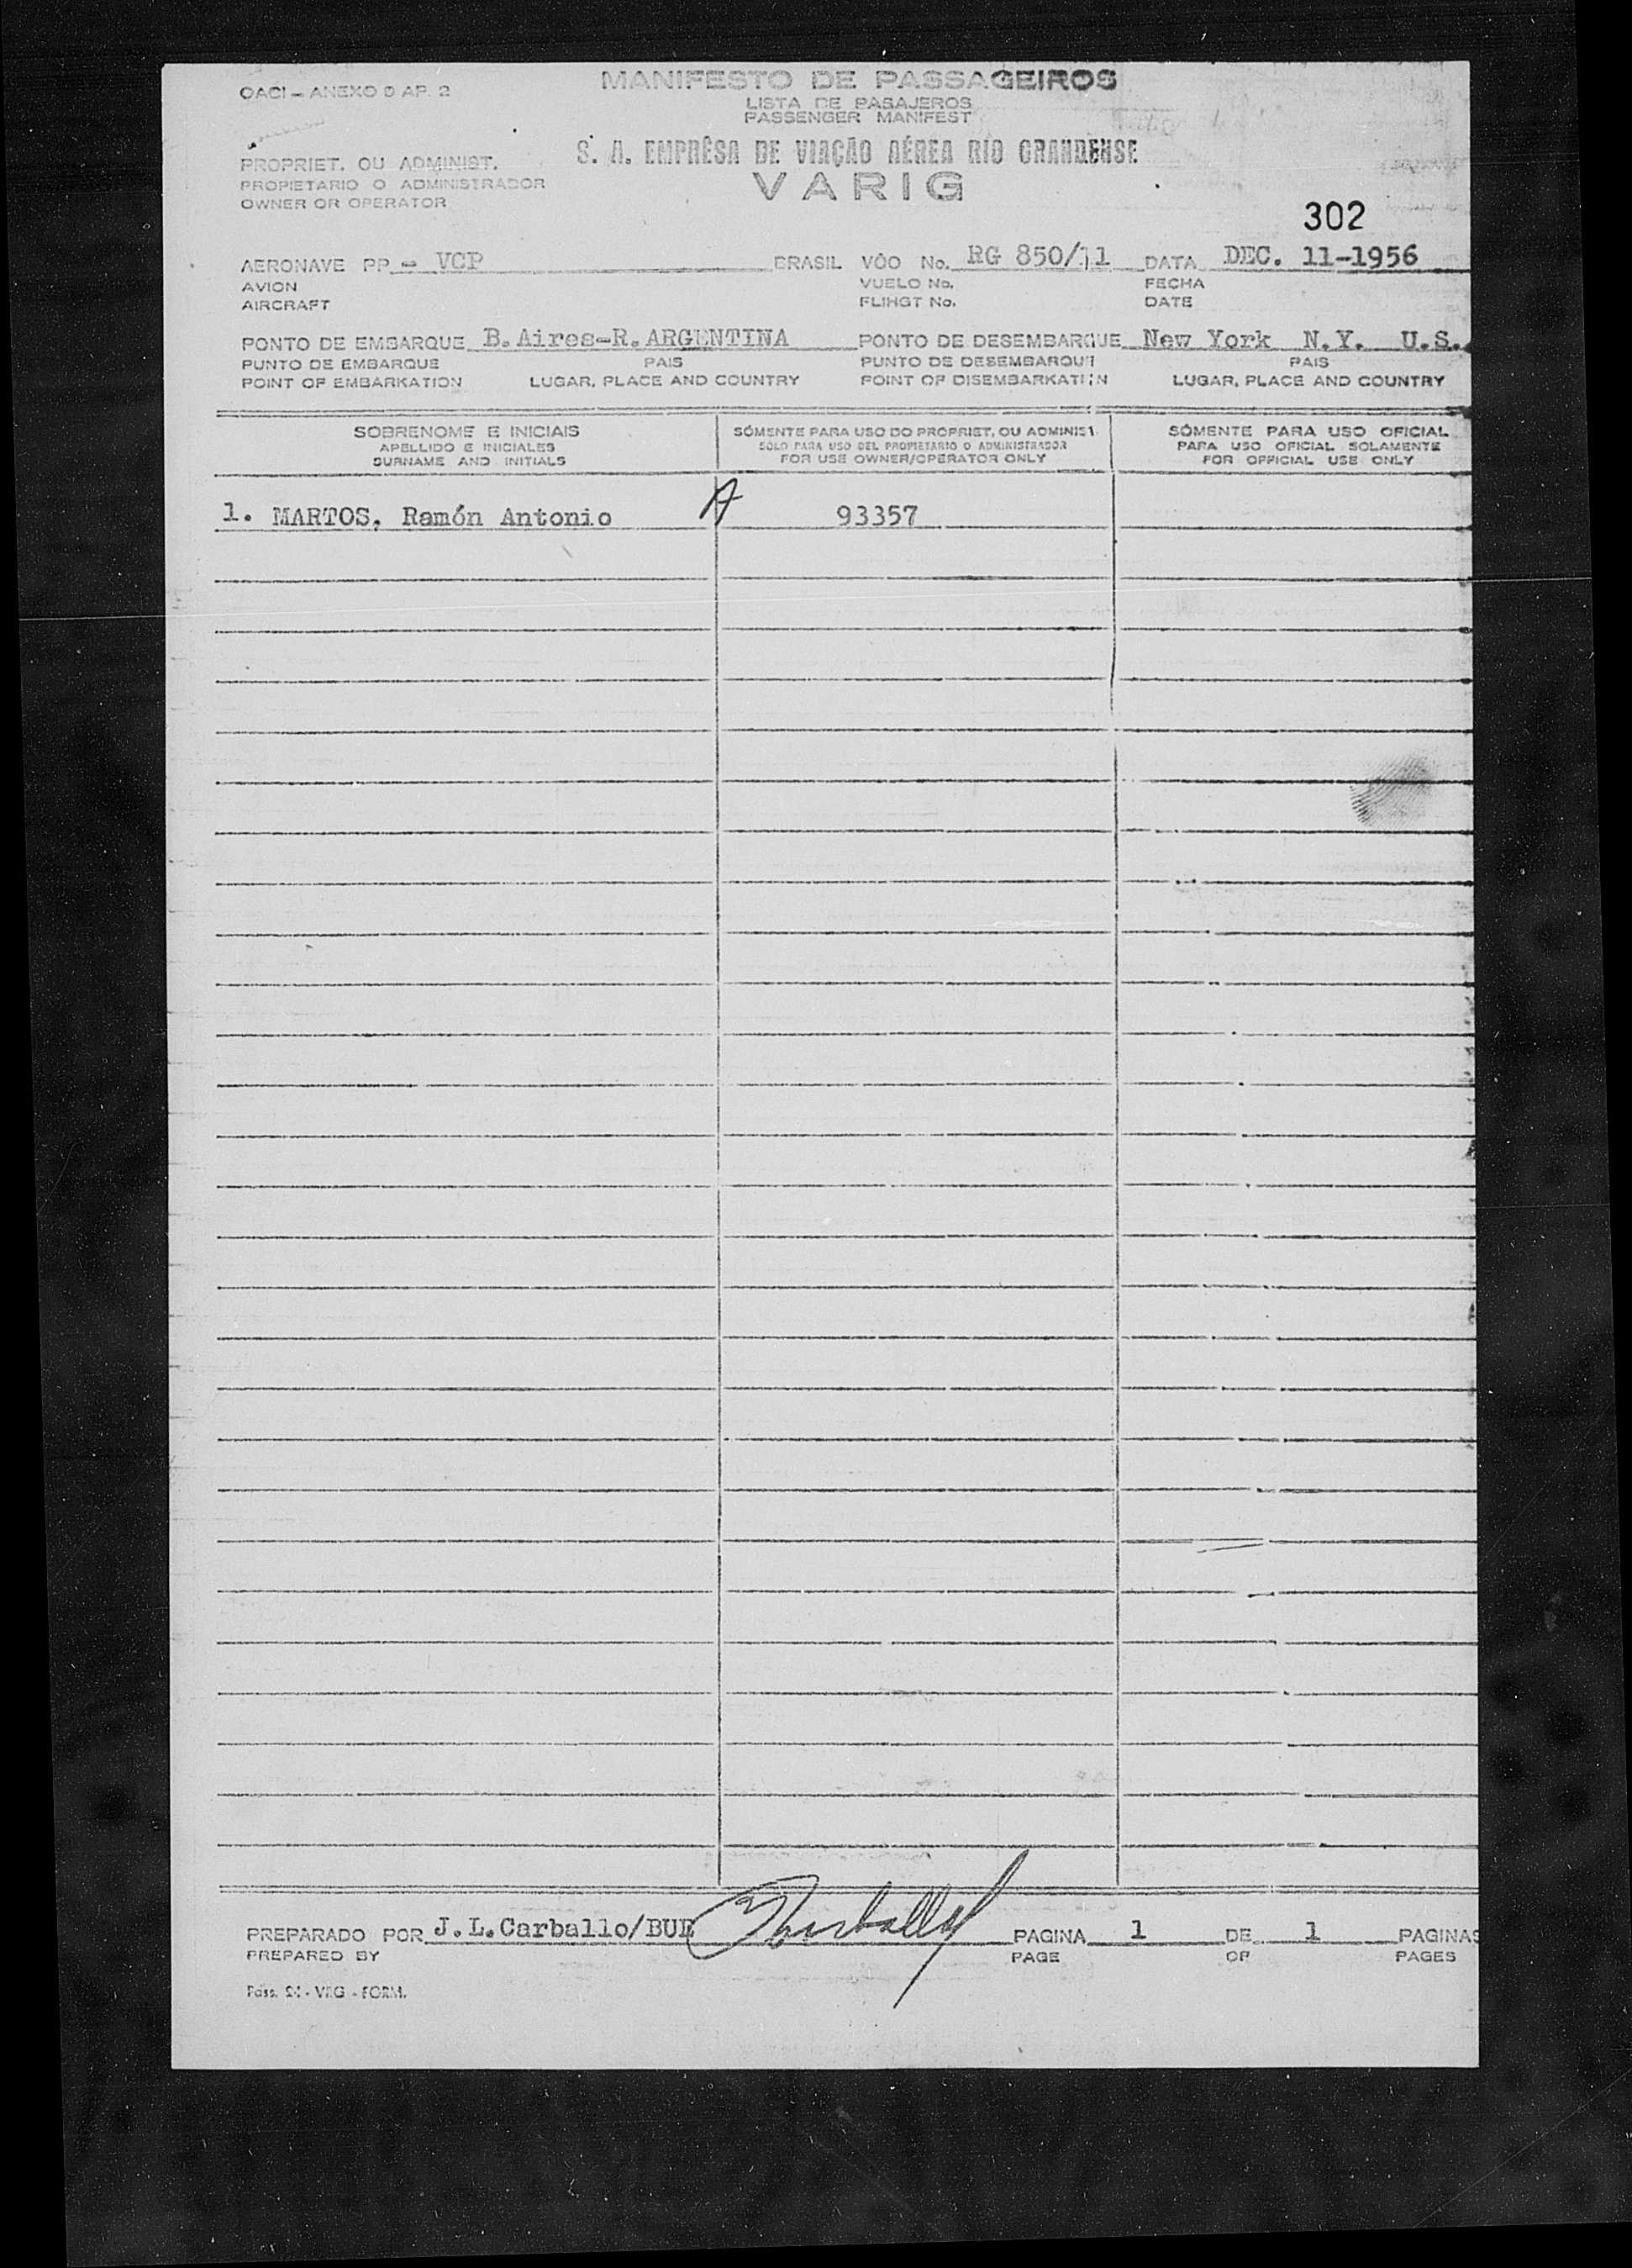 OACI – ANEXO 9 AP. 2
MANIFESTO DE PASSAGEIROS
LISTA DE PASAJEROS
PASSENGER MANIFEST
S. A. EMPRÊSA DE VIAÇÃO AÉREA RIO GRANDENSE
VARIG
PROPRIET. OU ADMINIST.
PROPIETARIO O ADMINISTRADOR
OWNER OR OPERATOR
302
AERONAVE PP - VCP BRASIL VÔO No. RG 850/11 DATA DEC. 11-1956
AVION VUELO No. FECHA
AIRCRAFT FLIHGT No. DATE
PONTO DE EMBARQUE B.Aires-R.ARGENTINA PONTO DE DESEMBARQUE New York N.Y. U.S.
PUNTO DE EMBARQUE PAIS PUNTO DE DESEMBARQUE PAIS
POINT OF EMBARKATION LUGAR, PLACE AND COUNTRY POINT OF DISEMBARKATION LUGAR, PLACE AND COUNTRY
SOBRENOME E INICIAIS SÓMENTE PARA USO DO PROPRIET, OU ADMINIST SÓMENTE PARA USO OFICIAL
APELLIDO E INICIALES SOLO PARA USO DEL PROPIETARIO O ADMINISTRADOR PARA USO OFICIAL SOLAMENTE
SURNAME AND INITIALS FOR USE OWNER/OPERATOR ONLY FOR OFFICIAL USE ONLY
1. MARTOS, Ramón Antonio A 93357
PREPARADO POR J.L.Carballo/BUE Carballo PAGINA 1 DE 1 PAGINAS
PREPARED BY PAGE OF PAGES
Pass. - VRG - FORM.